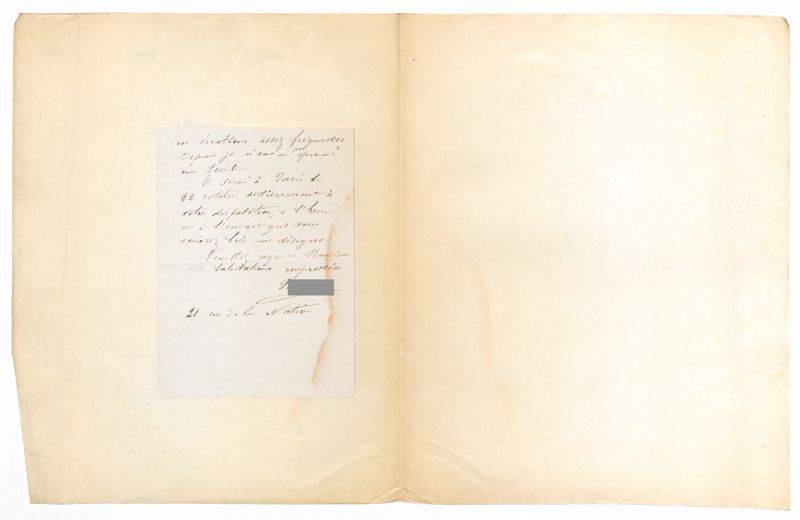 assez fréquentes
Depuis je n'en ai
une seule.
Je serai à Paris le
22 octobre entièrement à
votre disposition, à l'heure
et à l'endroit que vous
voudrez bien me désigner.
Veuillez agréer, Monsieur
salutations empressées
21 rue de la Nation